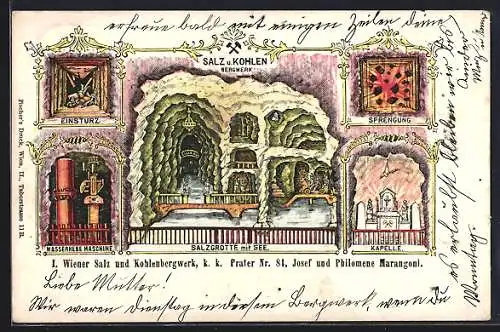 erfreue bald mit einigen Zeilen deine
SALZ u. KOHLEN
BERGWERK
EINSTURZ
SPRENGUNG
WASSERHEBE MASCHINE
SALZGROTTE MIT SEE.
KAPELLE.
Fischer's Druck, Wien, II., Taborstrasse 11 B.
1. Wiener Salz und Kohlenbergwerk, k. k. Prater Nr. 84, Josef und Philomene Marangoni.
Liebe Mutter!
Wir waren Dienstag in diesem Bergwerk, wenn Du
es erlaubst bleiben wir bis